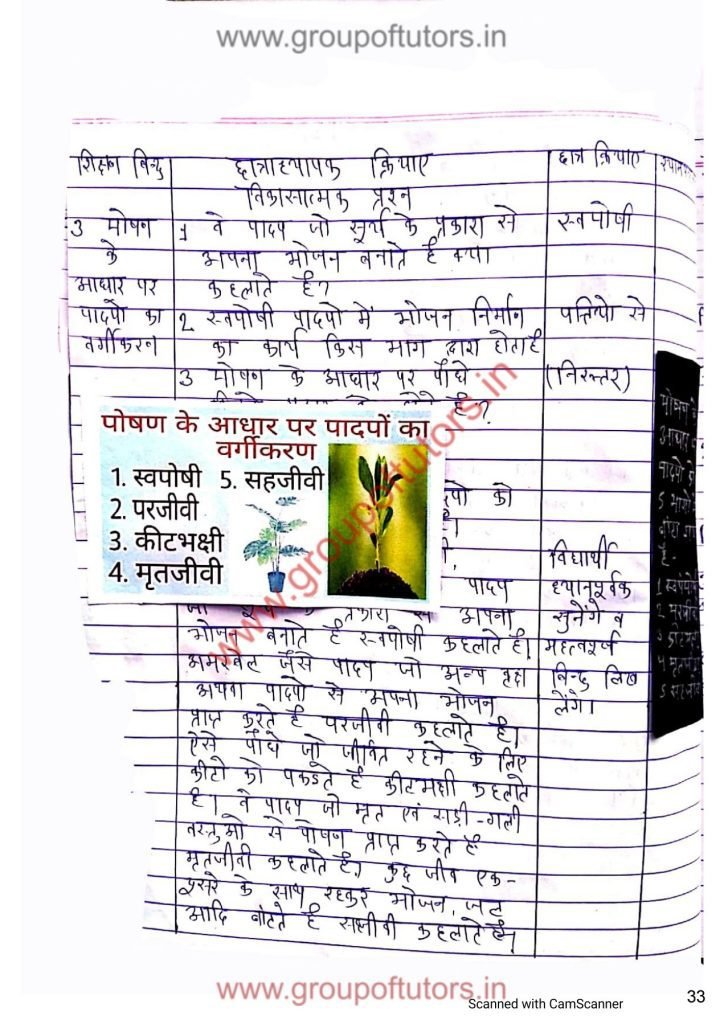 www.groupoftutors.in
शिक्षण बिन्दु
छात्राध्यापक क्रियाए
छात्र क्रियाए
विकासात्मक प्रश्न
3 पोषण
के
आधार पर
पादपो का
वर्गीकरण
1 वे पादप जो सूर्य के प्रकाश से
अपना भोजन बनाते है क्या
कहलाते है?
2 स्वपोषी पादपो में भोजन निर्माण
का कार्य किस भाग द्वारा होता है
3 पोषण के आधार पर पौधे
है?
स्वपोषी
पत्तियो से
(निरन्तर)
पोषण के आधार पर पादपों का
वर्गीकरण
1. स्वपोषी 5. सहजीवी
2. परजीवी
3. कीटभक्षी
4. मृतजीवी
को
पादप
अपना
भोजन बनाते है स्वपोषी कहलाते है।
अमरबेल जैसे पादप जो अन्य वृक्ष
अथवा पादपो से अपना भोजन
प्राप्त करते है परजीवी कहलाते है।
ऐसे पौधे जो जीवित रहने के लिए
कीटो को पकडते है कीटभक्षी कहलाते
है। वे पादप जो मृत एवं सड़ी-गली
वस्तुओ से पोषण प्राप्त करते है
मृतजीवी कहलाते है। कुछ जीव एक-
दूसरे के साथ रहकर भोजन, जल
आदि बांटते है सहजीवी कहलाते है।
विधार्थी
ध्यानपूर्वक
सुनेंगे व
महत्वपूर्ण
बिन्दु लिख
लेंगे।
पोषण के
आधार
5
है-
1 स्वपोषी
2 परजीवी
www.groupoftutors.in
www.groupoftutors.in
Scanned with CamScanner
33